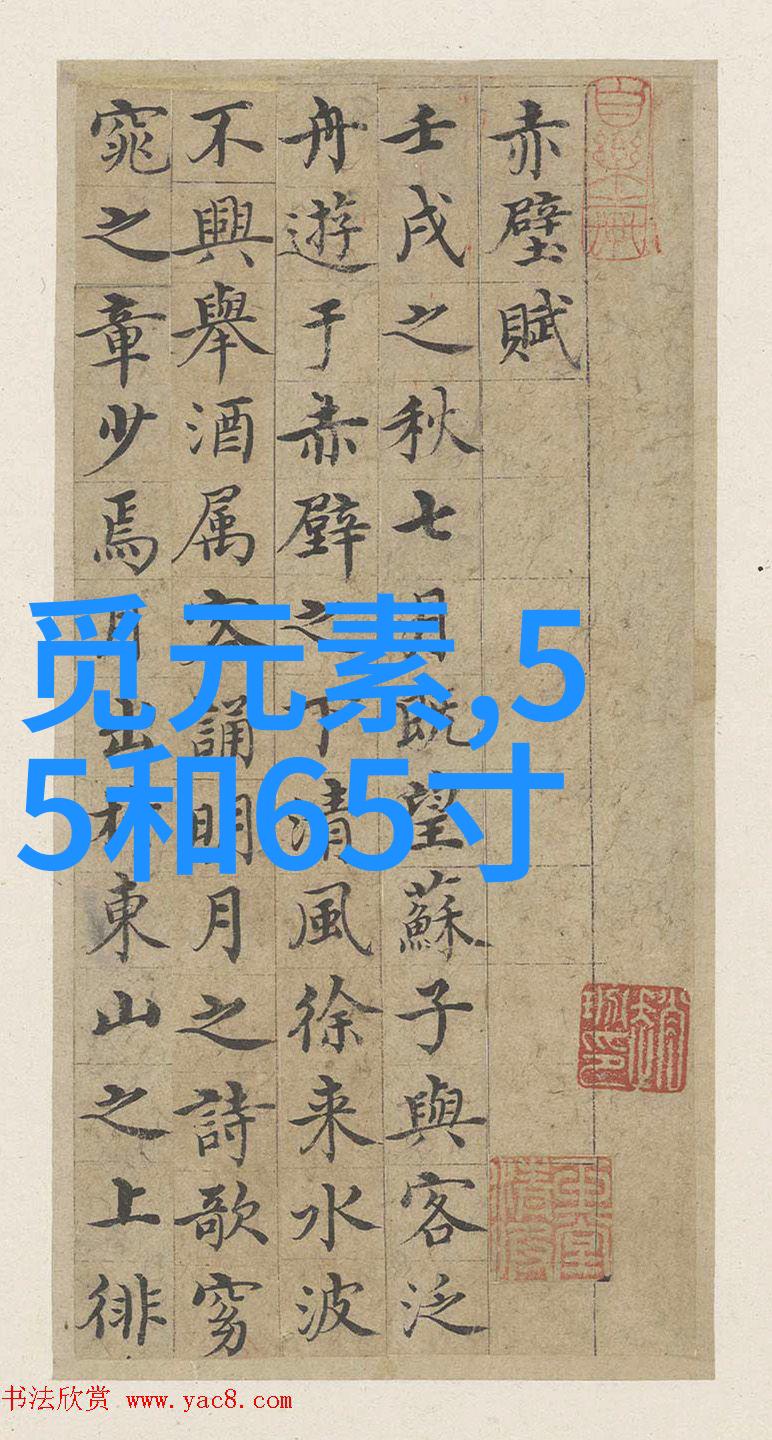 赤壁賦
壬戌之秋七月既望蘇子與客泛
舟遊于赤壁之下清風徐来水波
不興舉酒属客誦明月之詩歌窈
窕之章少焉月出於東山之上徘
觅元素,5
5和65寸
书法欣赏 www.yac8.com